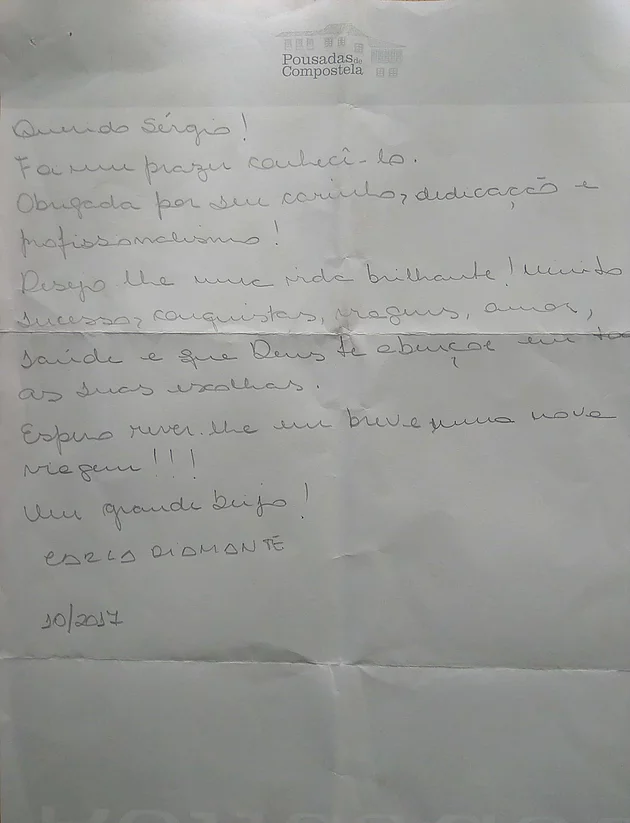 Pousadas de
Compostela
Querido Sérgio!
Foi um prazer conhecê-lo.
Obrigada por seu carinho, dedicação e
profissionalismo!
Desejo lhe uma vida brilhante! Muito
sucesso, conquistas, viagens, amor,
saúde e que Deus te abençoe em
as suas escolhas.
Espero rever-lhe em breve numa nova
viagem!!!
Um grande beijo!
CARLA DIAMANTE
10/2017